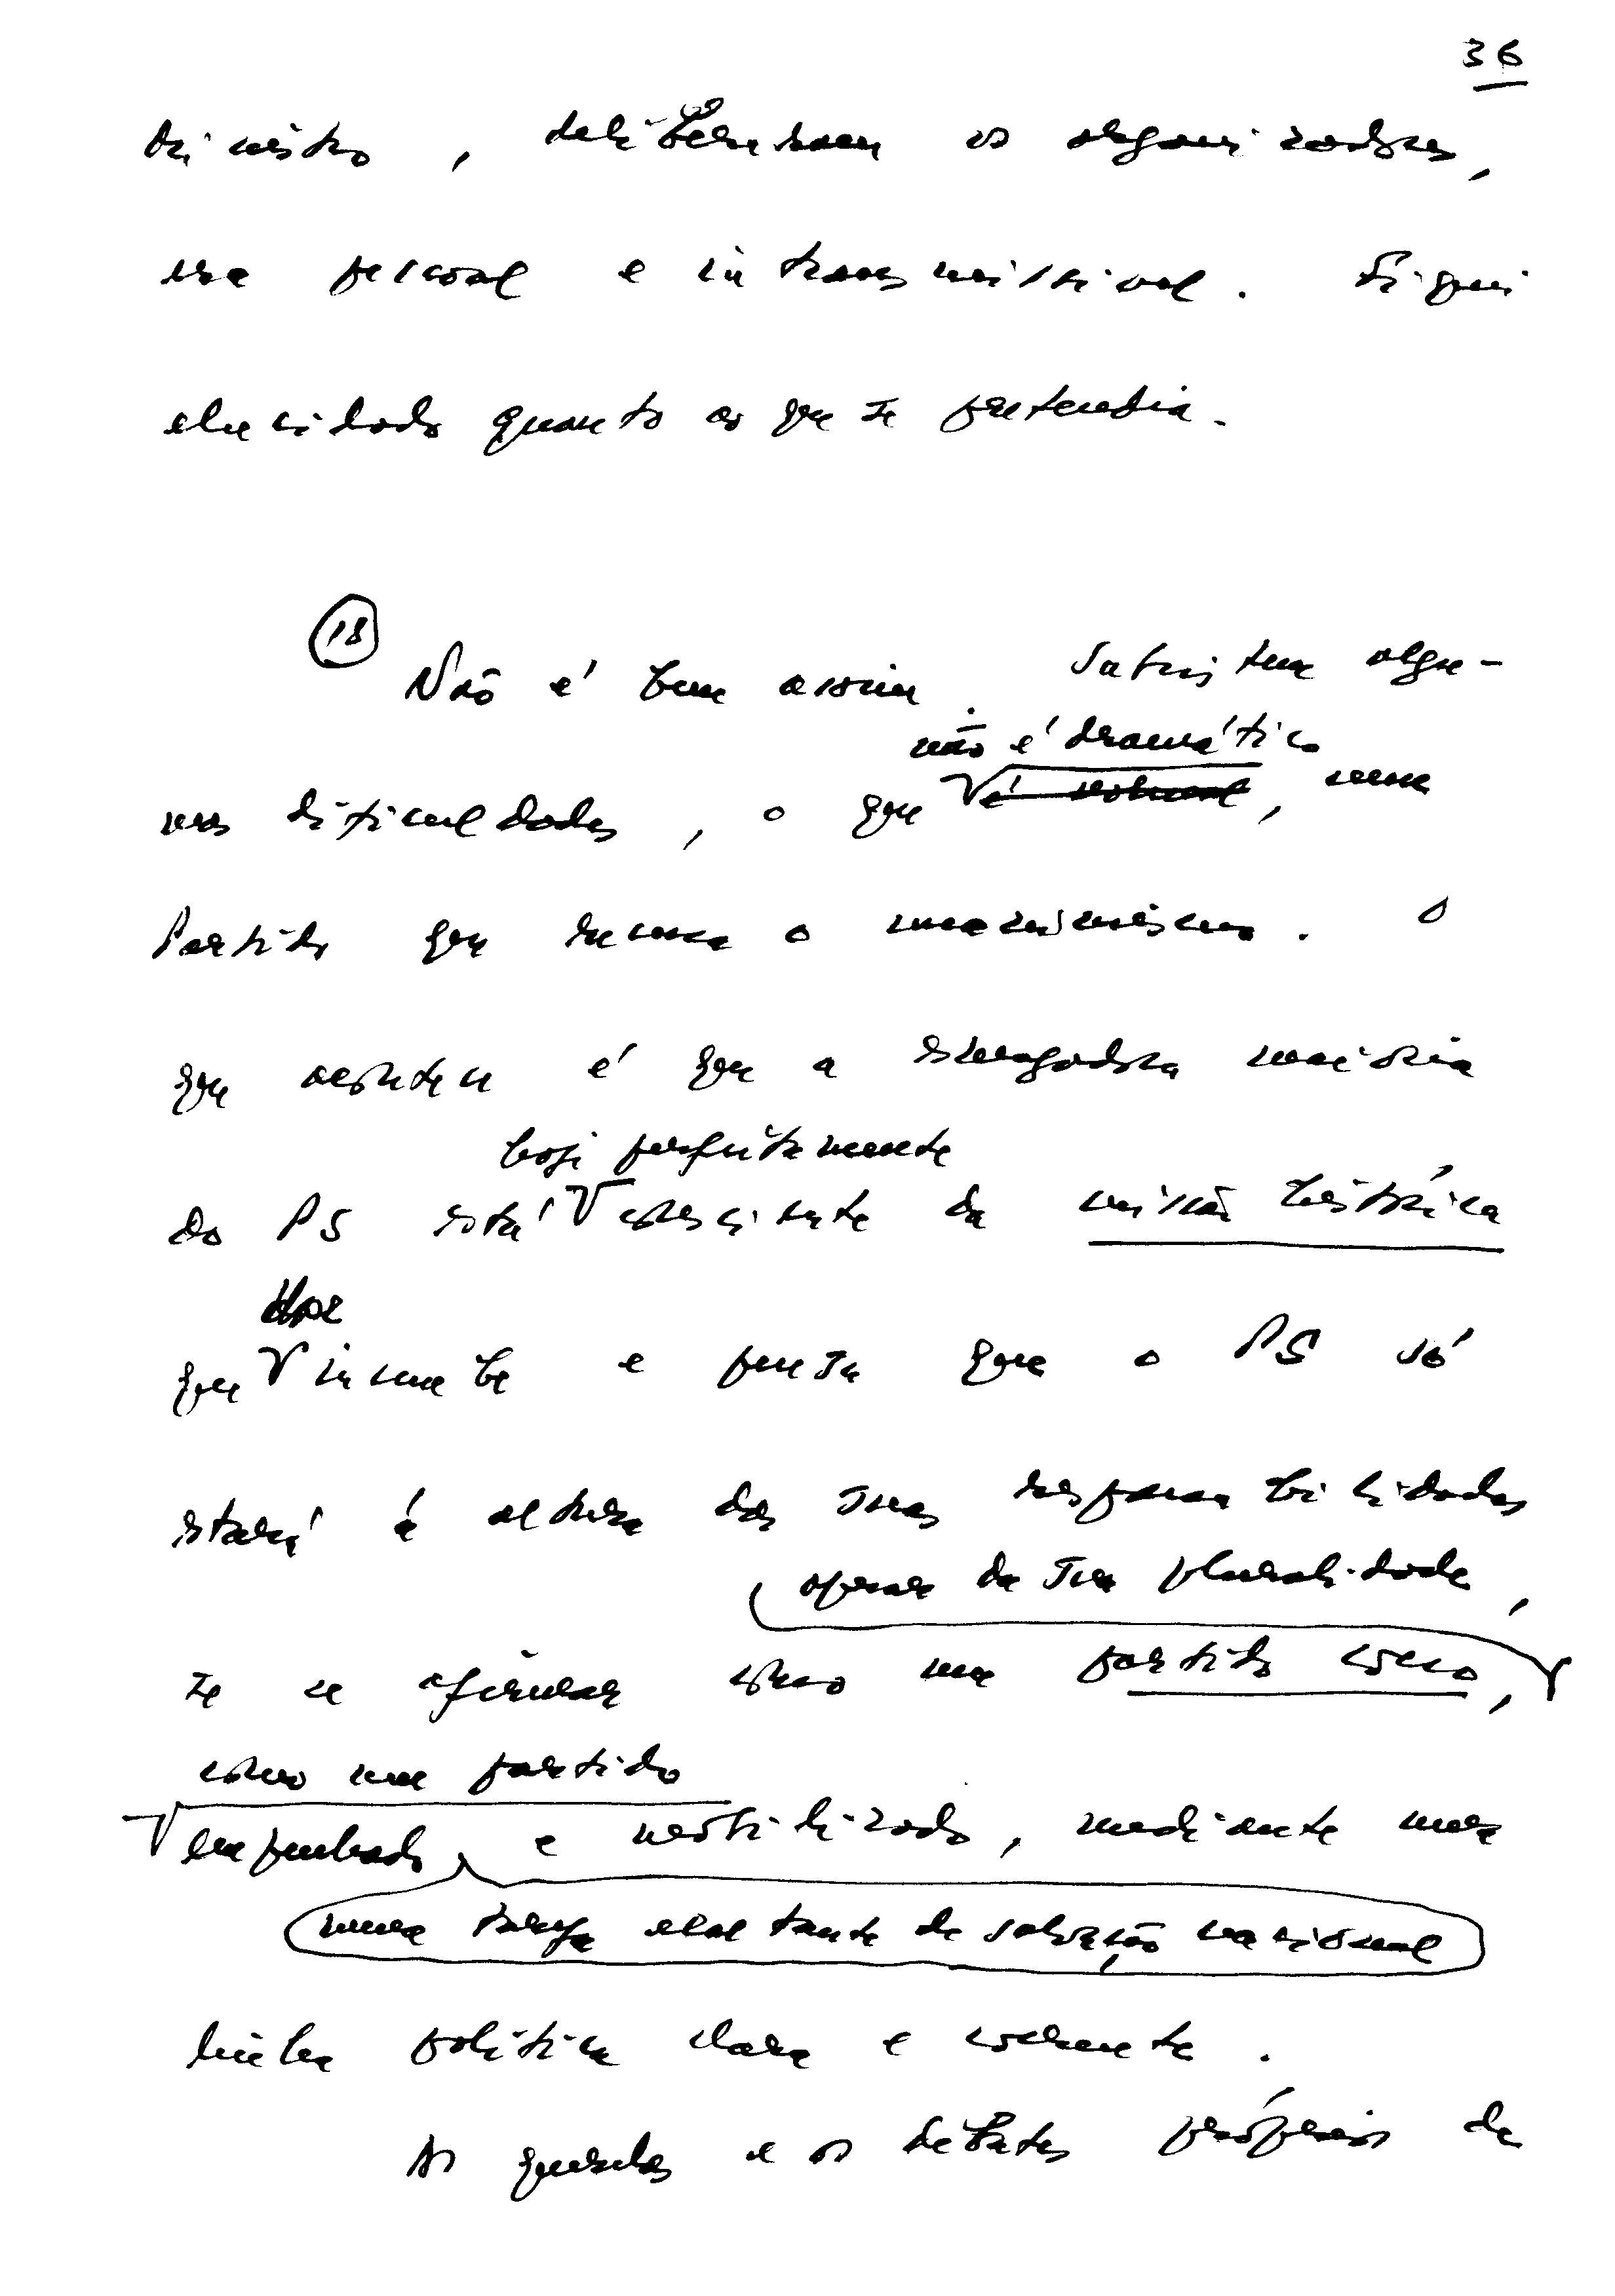 36
trimestre, deliberaram os organizadores,
era pessoal e intransmissível. Fiquei
elucidado quanto ao que se pretendia.
18
Não é bem assim. Subsistem algu-
não é dramático
mas dificuldades, o que é natural, num
Partido que recusa o
que acontece é que a esmagadora maioria
hoje perfeitamente
do PS está consciente da missão histórica
lhe
que incumbe e pensa que o PS só
estará à altura das suas responsabilidades
apesar da sua pluralidade,
se se afirmar como um partido coeso,
como um partido
empenhado e mobilizado, mediante uma
numa tarefa exaltante de salvação nacional
linha política clara e coerente.
As querelas e os debates próprios de